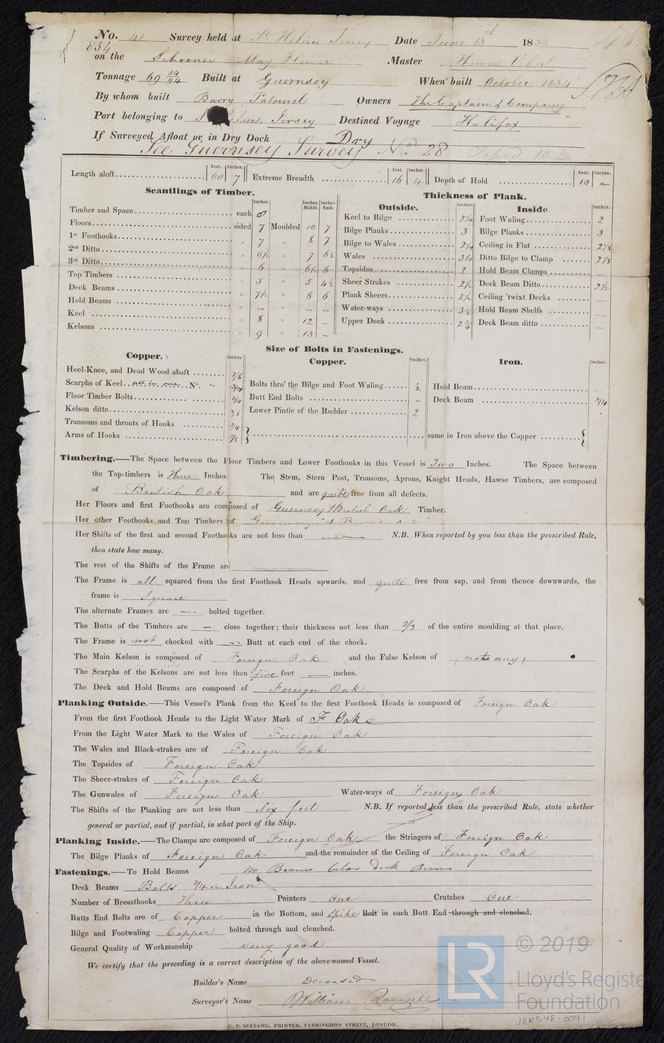 No. 41 Survey held at St. Helier Jersey Date June 13th 1835
834
on the Schooner May Flower Master Thomas
Tonnage 69 54/94 Built at Guernsey When built October 1834
By whom built Barry Patourel Owners The Captain & Company
Port belonging to St Heliers, Jersey Destined Voyage Halifax
If Surveyed Afloat or in Dry Dock Dry
See Guernsey Survey No 28
Length aloft Feet. 60 Inches. 7 Extreme Breadth Feet. 16 Inches. 4 Depth of Hold Feet. 10 Inches. —
Scantlings of Timber. Thickness of Plank.
Outside. Inside
Timber and Space each 8
Floors sided 7 Moulded 10 7
1st Foothooks " 7 " 8 7
2nd Ditto " 6½ " 7 6½
3rd Ditto " 6 " 6½ 6
Top Timbers " 5 " 5 4½
Deck Beams " 7½ " 6 6
Hold Beams " — " — —
Keel " 8 12 —
Kelsons " 9 " 13 —
Keel to Bilge 2¼
Bilge Planks 3
Bilge to Wales 2¼
Wales 3¼
Topsides 2
Sheer Strakes 2½
Plank Sheers 2½
Water-ways 3½
Upper Deck 2¼
Foot Waling 2
Bilge Planks 3
Ceiling in Flat 2⅛
Ditto Bilge to Clamp 2⅛
Hold Beam Clamps —
Deck Beam Ditto 2½
Ceiling 'twixt Decks —
Hold Beam Shelfs —
Deck Beam ditto —
Size of Bolts in Fastenings.
Copper. Copper. Iron.
Heel-Knee, and Dead Wood abaft 7/8
Scarphs of Keel No. 3/4
Floor Timber Bolts 3/4
Kelson ditto 7/8
Transoms and throats of Hooks 3/4
Arms of Hooks
Bolts thro' the Bilge and Foot Waling
Butt End Bolts
Lower Pintle of the Rudder 2
Hold Beam —
Deck Beam 3/4
same in Iron above the Copper
Timbering.—The Space between the Floor Timbers and Lower Foothooks in this Vessel is Two Inches. The Space between
the Top-timbers is Three Inches. The Stem, Stern Post, Transoms, Aprons, Knight Heads, Hawse Timbers, are composed
of British Oak and are quite free from all defects.
Her Floors and first Foothooks are composed of Guernsey & British Oak Timber.
Her other Foothooks and Top Timbers of Guernsey
Her Shifts of the first and second Foothooks are not less than — N.B. When reported by you less than the prescribed Rule,
then state how many.
The rest of the Shifts of the Frame are
The Frame is all squared from the first Foothook Heads upwards, and quite free from sap, and from thence downwards, the
frame is Square
The alternate Frames are — bolted together.
The Butts of the Timbers are — close together; their thickness not less than 2/3 of the entire moulding at that place.
The Frame is not chocked with — Butt at each end of the chock.
The Main Kelson is composed of Foreign Oak and the False Kelson of (not any)
The Scarphs of the Kelsons are not less than five feet — inches.
The Deck and Hold Beams are composed of Foreign Oak
Planking Outside.—This Vessel's Plank from the Keel to the first Foothook Heads is composed of Foreign Oak
From the first Foothook Heads to the Light Water Mark of F. Oak
From the Light Water Mark to the Wales of Foreign Oak
The Wales and Black-strakes are of Foreign Oak
The Topsides of Foreign Oak
The Sheer-strakes of Foreign Oak
The Gunwales of Foreign Oak Water-ways of Foreign Oak
The Shifts of the Planking are not less than Six feet N.B. If reported less than the prescribed Rule, state whether
general or partial, and if partial, in what part of the Ship.
Planking Inside.—The Clamps are composed of Foreign Oak the Stringers of Foreign Oak
The Bilge Planks of Foreign Oak and the remainder of the Ceiling of Foreign Oak
Fastenings.—To Hold Beams No Beams below deck Beams
Deck Beams Bolts 3/4 in Iron
Number of Breasthooks Three Pointers One Crutches One
Butts End Bolts are of Copper in the Bottom, and Spike Bolt in each Butt End through and clenched.
Bilge and Footwaling Copper bolted through and clenched.
General Quality of Workmanship very good
We certify that the preceding is a correct description of the above-named Vessel.
Builder's Name Deceased
Surveyor's Name William
SEYFANG, PRINTER, FARRINGDON STREET, LONDON.
LR © 2019
Lloyd's Register
Foundation
JER548-0041